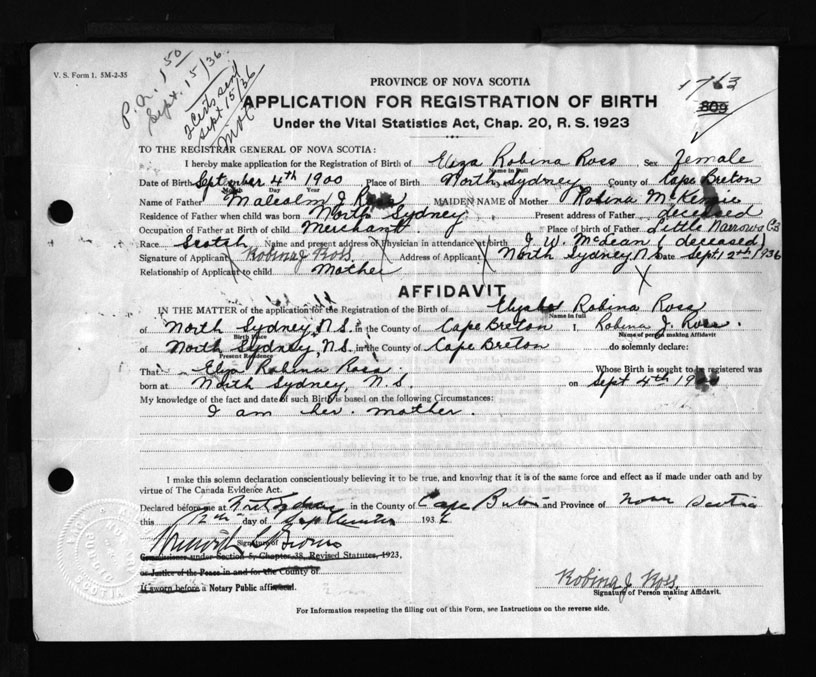 V. S. Form 1. 5M-2-35
P.N. 1.50
Sept. 15/36.
2 Certs send
Sept 15/36
PROVINCE OF NOVA SCOTIA
1763
809
APPLICATION FOR REGISTRATION OF BIRTH
Under the Vital Statistics Act, Chap. 20, R. S. 1923
TO THE REGISTRAR GENERAL OF NOVA SCOTIA:
I hereby make application for the Registration of Birth of Eliza Robina Ross Sex female
Name in Full
Date of Birth September 4th 1900 Place of Birth North Sydney County of Cape Breton
Month Day Year
Name of Father Malcolm J Ross MAIDEN NAME of Mother Robina McKenzie
Residence of Father when child was born North Sydney Present address of Father deceased
Occupation of Father at Birth of Child Merchant Place of birth of Father Little Narrows C.B
Race Scotch Name and present address of Physician in attendance at birth J. W. McLean (deceased)
Signature of Applicant Robina J Ross Address of Applicant North Sydney N.S Date Sept 12th/1936
Relationship of Applicant to child Mother
AFFIDAVIT
IN THE MATTER of the application for the Registration of the Birth of Robina Ross
Name in full
of North Sydney, N.S. in the County of Cape Breton I, Robina J. Ross.
Birth Place Name of person making Affidavit
of North Sydney, N.S. in the County of Cape Breton do solemnly declare:
Present Residence
That Eliza Robina Ross. Whose Birth is sought to be registered was
born at North Sydney, N.S. on Sept 4th
My knowledge of the fact and date of such Birth is based on the following Circumstances:
I am her mother.
I make this solemn declaration conscientiously believing it to be true, and knowing that it is of the same force and effect as if made under oath and by
virtue of The Canada Evidence Act.
Declared before me at North Sydney in the County of Cape Breton and Province of Nova Scotia
this 12th day of September 1936
Signature of
Commissioner under Section 5, Chapter 38, Revised Statutes, 1923,
or Justice of the Peace in and for the County of
If sworn before a Notary Public affix seal.
Robina J Ross
Signature of Person making Affidavit.
For Information respecting the filling out of this Form, see Instructions on the reverse side.